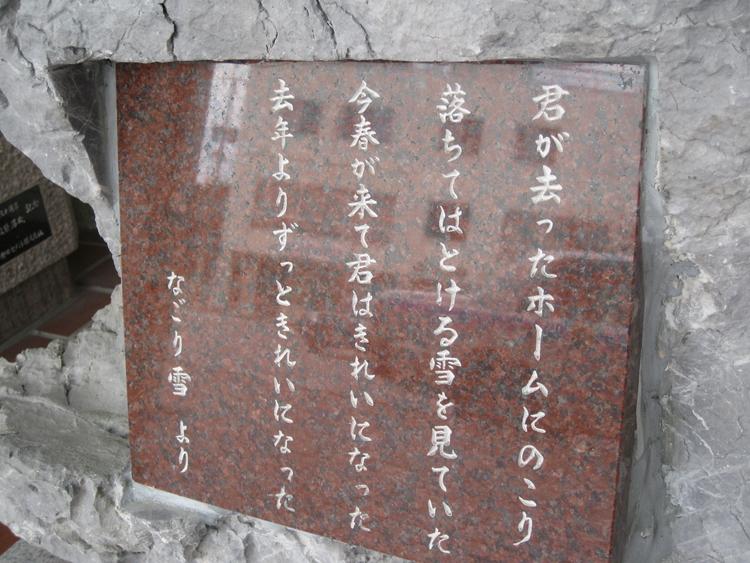 君が去ったホームにのこり
落ちてはとける雪を見ていた
今春が来て君はきれいになった
去年よりずっときれいになった
なごり雪 より